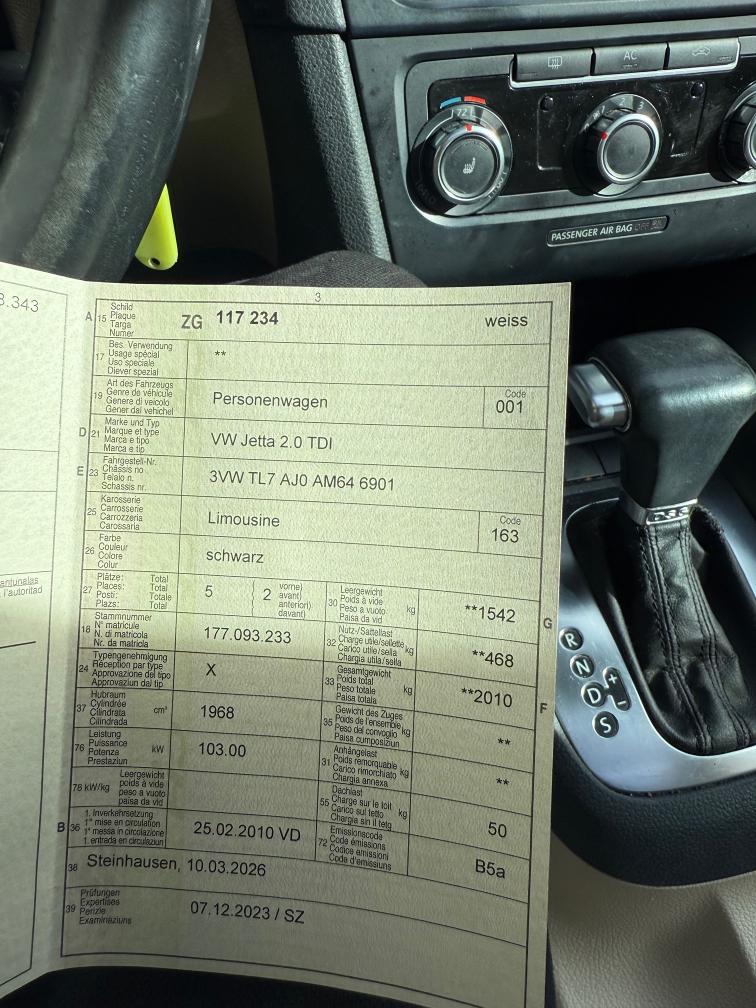 AC
72
PASSENGER AIR BAG OFF
R
N
D
+
-
S
3.343
antunalas
l'autoritad
3
A 15 Schild
Plaque
Targa
Numer
ZG 117 234 weiss
17 Bes. Verwendung
Usage spécial
Uso speciale
Diever spezial
**
19 Art des Fahrzeugs
Genre de véhicule
Genere di veicolo
Gener dal vehichel
Personenwagen
Code
001
D 21 Marke und Typ
Marque et type
Marca e tipo
Marca e tip
VW Jetta 2.0 TDI
E 23 Fahrgestell-Nr.
Châssis no
Telaio n.
Schassis nr.
3VW TL7 AJ0 AM64 6901
25 Karosserie
Carrosserie
Carrozzeria
Carossaria
Limousine
Code
163
26 Farbe
Couleur
Colore
Colur
schwarz
27 Plätze: Total
Places: Total
Posti: Totale
Plazs: Total
5 2 vorne)
avant)
anteriori)
davant)
30 Leergewicht
Poids à vide
Peso a vuoto
Paisa da vid
kg
**1542
G
18 Stammnummer
N° matricule
N. di matricola
Nr. da matricla
177.093.233
32 Nutz-/Sattellast
Charge utile/sellette
Carico utile/sella
Chargia utila/sella
kg
**468
24 Typengenehmigung
Réception par type
Approvazione del tipo
Approvaziun dal tip
X
33 Gesamtgewicht
Poids total
Peso totale
Paisa totala
kg
**2010
F
37 Hubraum
Cylindrée
Cilindrata
Cilindrada
cm³
1968
35 Gewicht des Zuges
Poids de l'ensemble
Peso del convoglio
Paisa cumposiziun
kg
**
76 Leistung
Puissance
Potenza
Prestaziun
kW
103.00
31 Anhängelast
Poids remorquable
Carico rimorchiato
Chargia annexa
kg
**
78 kW/kg Leergewicht
poids à vide
peso a vuoto
paisa da vid
55 Dachlast
Charge sur le toit
Carico sul tetto
Chargia sin il tetg
kg
50
B 36 1. Inverkehrsetzung
1re mise en circulation
1a messa in circolazione
1. entrada en circulaziun
25.02.2010 VD
72 Emissionscode
Code émissions
Codice emissioni
Code d'emissiuns
B5a
38 Steinhausen, 10.03.2026
39 Prüfungen
Expertises
Perizie
Examinaziuns
07.12.2023 / SZ